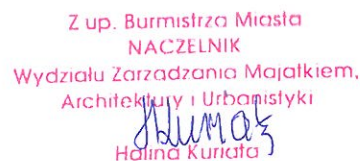 Z up. Burmistrza Miasta
NACZELNIK
Wydziału Zarządzania Majątkiem,
Architektury i Urbanistyki
Halina Kuriata